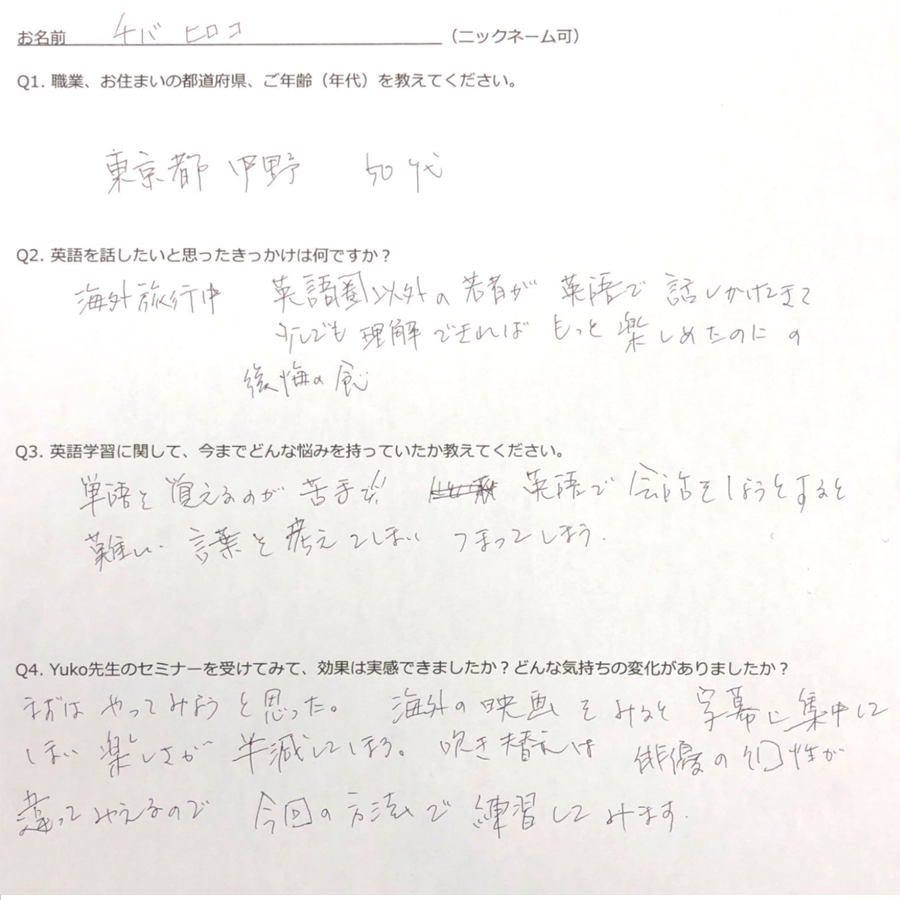 お名前 チバ ヒロコ (ニックネーム可)
Q1. 職業、お住まいの都道府県、ご年齢(年代)を教えてください。
東京都 中野 50代
Q2. 英語を話したいと思ったきっかけは何ですか?
海外旅行中 英語圏以外の若者が 英語で 話しかけてきて
少しでも 理解できれば もっと 楽しめたのに の
後悔の念
Q3. 英語学習に関して、今までどんな悩みを持っていたか教えてください。
単語を覚えるのが 苦手で!! 英語で 会話をしようとすると
難しい 言葉を 考えてしまい つまってしまう.
Q4. Yuko先生のセミナーを受けてみて、効果は実感できましたか?どんな気持ちの変化がありましたか?
まずは やってみようと思った。 海外の映画をみると 字幕に集中して
しまい 楽しさが 半減してしまう。 吹き替えは 俳優の個性が
違ってみえるので 今回の方法で 練習してみます.